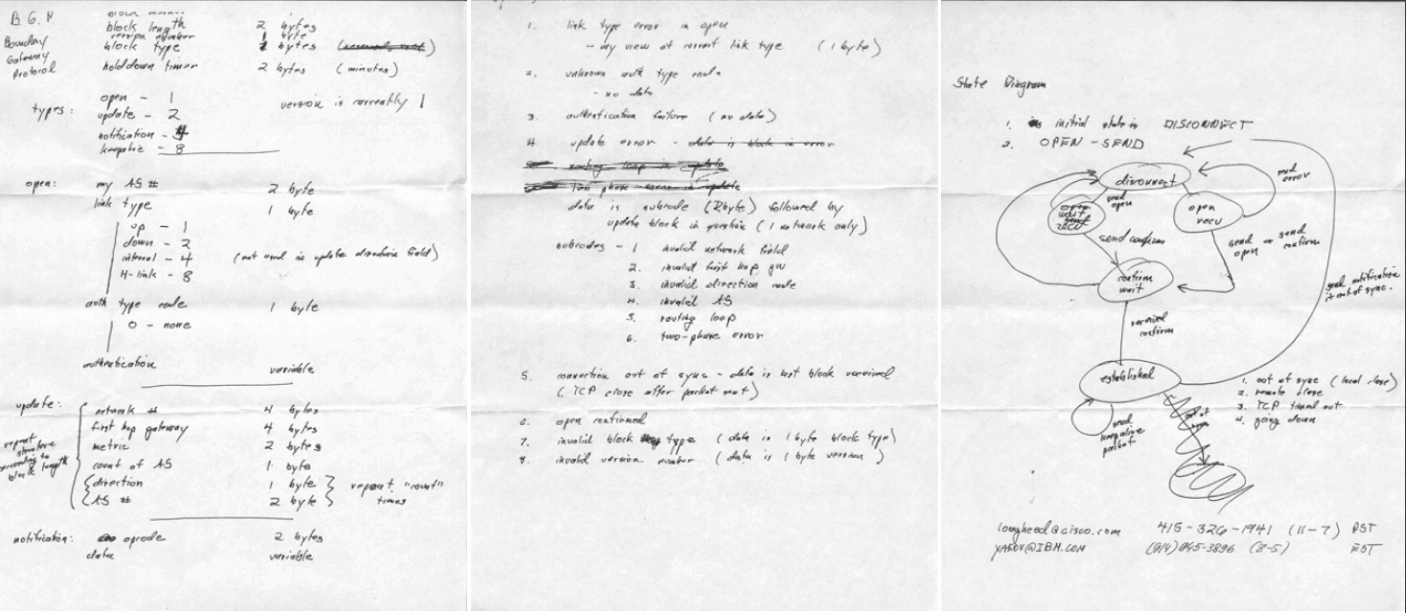 B. G. P
Boundary
Gateway
Protocol
block length 2 bytes
version number 1 byte
block type 1 bytes
holddown timer 2 bytes (minutes)
types:
open - 1 version is currently 1
update - 2
notification - 4
keepalive - 8
open: my AS # 2 byte
link type 1 byte
up - 1
down - 2
internal - 4 (not used in update direction field)
H-link - 8
auth type code 1 byte
0 - none
authentication variable
update:
repeat
structure
according to
block length
network # 4 bytes
first hop gateway 4 bytes
metric 2 bytes
count of AS 1 byte
direction 1 byte
AS # 2 byte
repeat "count"
times
notification: opcode 2 bytes
data variable
1. link type error in open
- my view of correct link type (1 byte)
2. unknown auth type code
- no data
3. authentication failure (no data)
4. update error - data is block in error
routing loop in update
two phase error in update
data is subcode (2byte) followed by
update block in question (1 network only)
subcodes - 1 invalid network field
2. invalid first hop gw
3. invalid direction code
4. invalid AS
5. routing loop
6. two-phase error
5. connection out of sync - data is last block received
(TCP close after packet sent)
6. open confirmed
7. invalid block type (data is 1 byte block type)
8. invalid version number (data is 1 byte version)
State Diagram
1. initial state is DISCONNECT
2. OPEN - SEND
disconnect
send
error
send
open
open
recv
send confirm
send or send
open confirm
confirm
wait
send notification
if out of sync.
received
confirm
established
1. out of sync (local close)
2. remote close
3. TCP timed out
4. going down
send
keepalive
packet
lougheed@cisco.com 415-326-1941 (11-7) PST
YAKOV@IBM.COM (914)945-3896 (8-5) EST